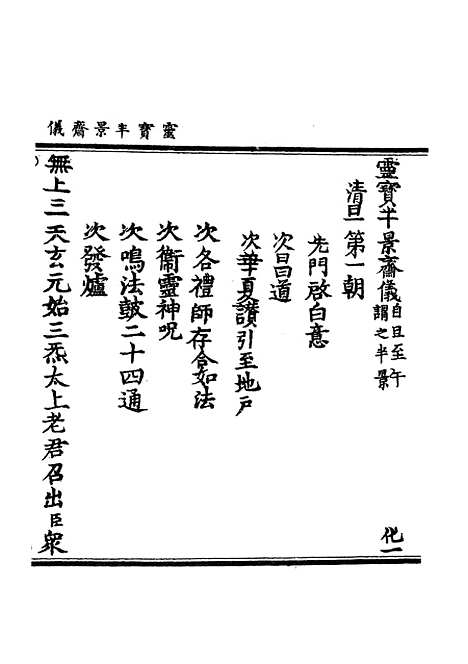 靈寶半景齋儀
靈寶半景齋儀自旦至午謂之半景 化一
清旦第一朝
先門啟白意
次昌道
次華夏讚引至地戶
次各禮師存念如法
次衞靈神呪
次鳴法鼓二十四通
次發爐
無上三天玄元始三炁太上老君召出臣衆